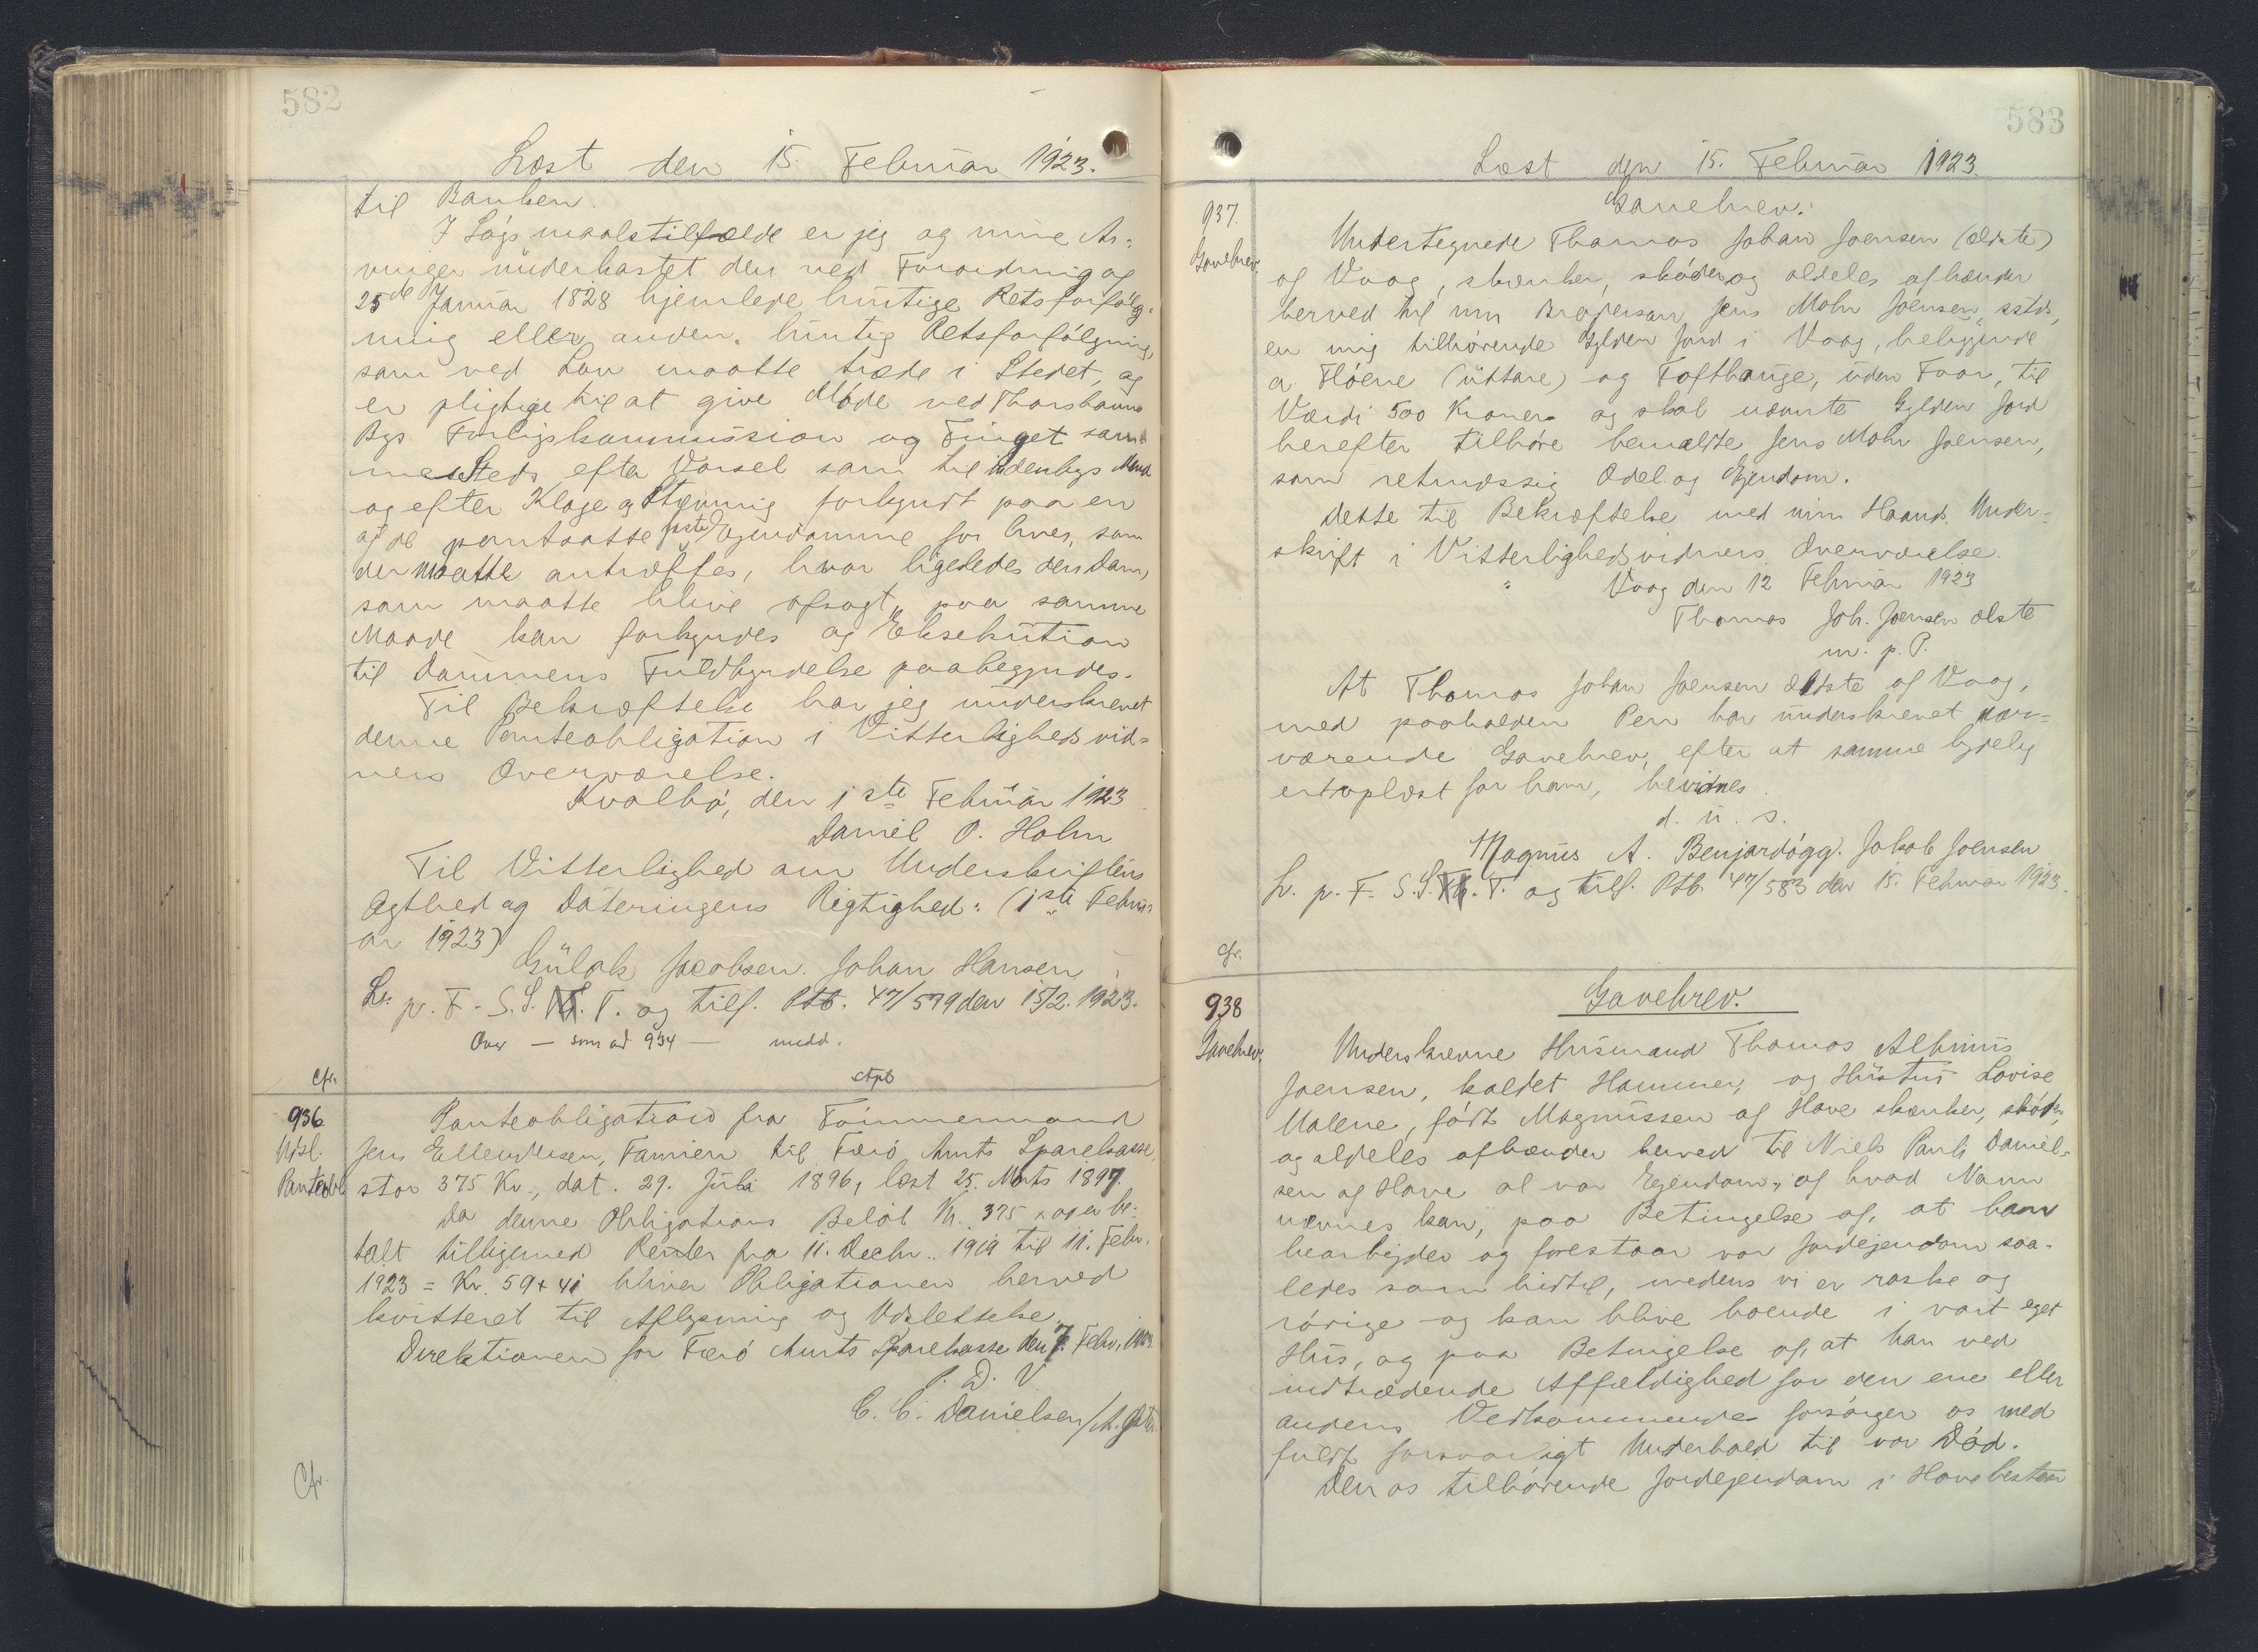 582
Læst den 15. Februar 1923.
til Banken.
I Lógsmaalstilfælde er jeg og mine Ar-
vinger underkastet den ved Forordning af
25de Januar 1828 hjemlede hurtige Retsforfólg-
ning eller anden hurtig Retsforfólgning,
som ved Lov maatte træde i Stedet, og
er pligtige til at give Móde ved Thorshavns
Bys Forligskommission og Tinget sam-
mesteds efter Varsel som til Udenbys Mænd
og efter Klage og Stævning forkyndt paa en
af de pantsatte faste Ejendomme for hver, som
der maatte antræffes, hvor ligeledes den Dom,
som maatte blive afsagt, paa samme
Maade kan forkyndes og Eksekution
til Dommens Fuldbyrdelse paabegyndes.
Til Bekræftelse har jeg underskrevet
denne Panteobligation i Vitterlighedsvid-
ners Overværelse.
Kvalbó, den 1ste Februar 1923
Daniel P. Holm
Til Vitterlighed om Underskriftens
Ægthed og Dateringens Rigtighed: (1ste Febru-
ar 1923)
Gulak Jacobsen. Johan Hansen
L. p. F. S. S. T. og tilf. Ptb. 47/579 den 15/2. 1923.
Over — som ad 934 — medd.
Cfr.
936
Udsl.
Panteobl.
Panteobligation fra Tómmermand
Jens Ellendersen, Famien til Færó Amts Sparekasse,
stor 375 Kr., dat. 29. Juli 1896, læst 25. Marts 1897.
Da denne Obligations Belób Kr. 375 er be-
talt tilligemed Renter fra 11. Decbr. 1919 til 11. Febr.
1923 = Kr. 59 + 41 bliver Obligationen herved
kvitteret til Aflysning og Udslettelse.
Direktionen for Færó Amts Sparekasse den 7. Febr. 1923.
P. D. V
C. C. Danielsen /
Cfr.
583
Læst den 15. Februar 1923.
937.
Gavebrev
Gavebrev.
Undertegnede Thomas Johan Joensen (ældste)
af Vaag, skænker, skóder og aldeles afhænder
herved til min Brodersøn Jens Mohr Joensen, sstds,
en mig tilhórende Gylden Jord i Vaag, beliggende
a Flóene (uttare) og Tofthauge, uden Faar, til
Værdi 500 Kroner og skal nævnte Gylden Jord
herefter tilhóre bemældte Jens Mohr Joensen,
som retmæssig Odel og Ejendom.
Dette til Bekræftelse med min Haands Under-
skrift i Vitterlighedsvidners Overværelse.
Vaag den 12 Februar 1923
Thomas Joh. Joensen ælste
m. p. P.
At Thomas Johan Joensen ældste af Vaag,
med paaholden Pen har underskrevet nær-
værende Gavebrev, efter at samme lydelig
er oplæst for ham, bevidnes.
d. u. s.
Magnus A. Benjardógg. Jakob Joensen
L. p. F. S. S. T. og tilf. Ptb. 47/583 den 15. Februar 1923.
Cfr.
938
Gavebrev
Gavebrev.
Underskrevne Husmand Thomas Albinus
Joensen, kaldet Hammer, og Hustru Lovise
Malene, fódt Magnussen af Hove skænker, skóder,
og aldeles afhænder herved til Niels Pauli Daniel-
sen af Hove al vor Ejendom, af hvad Navn
nævnes kan, paa Betingelse af, at han
bearbejder og forestaar vor Jordejendom saa-
ledes som hidtil, medens vi er raske og
rórige og kan blive boende i vort eget
Hus, og paa Betingelse af, at han ved
indtrædende Affældighed for den ene eller
andens Vedkommende forsórger os med
fuldt forsvarligt Underhold til vor Dód.
Den os tilhórende Jordejendom i Hove bestaar